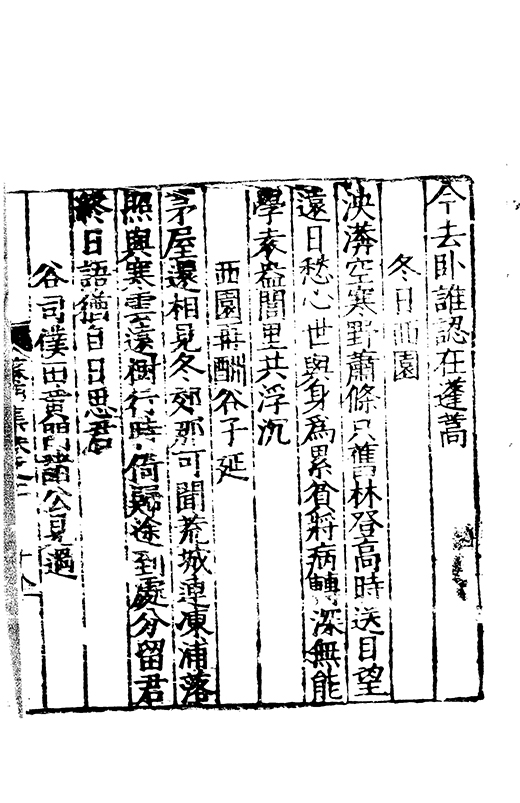 今去卧誰認在蓬蒿
冬日西園
泱漭空寒野蕭條只舊林登高時送目望
遠日愁心世與身爲累貧將病轉深無能
學袁盎閭里共浮沉
西園再酬谷子延
茅屋還相見冬郊那可聞荒城連凍浦落
照與寒雲遠樹行時倚歸途到處分留君
終日語猶自日思君
谷司僕西黃門諸公見過
集卷之